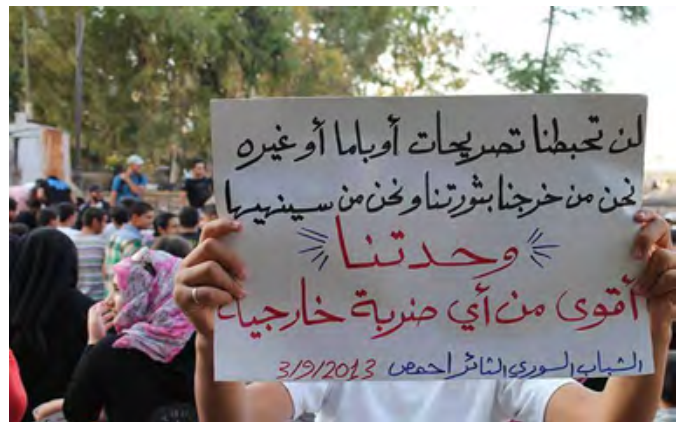 لن تحبطنا تصريحات أوباما أو غيره
نحن من خرجنا بثورتنا ونحن من سينهيها
وحدتنا
أقوى من أي ضربة خارجية
الشباب السوري الثائر احمص 3/9/2013